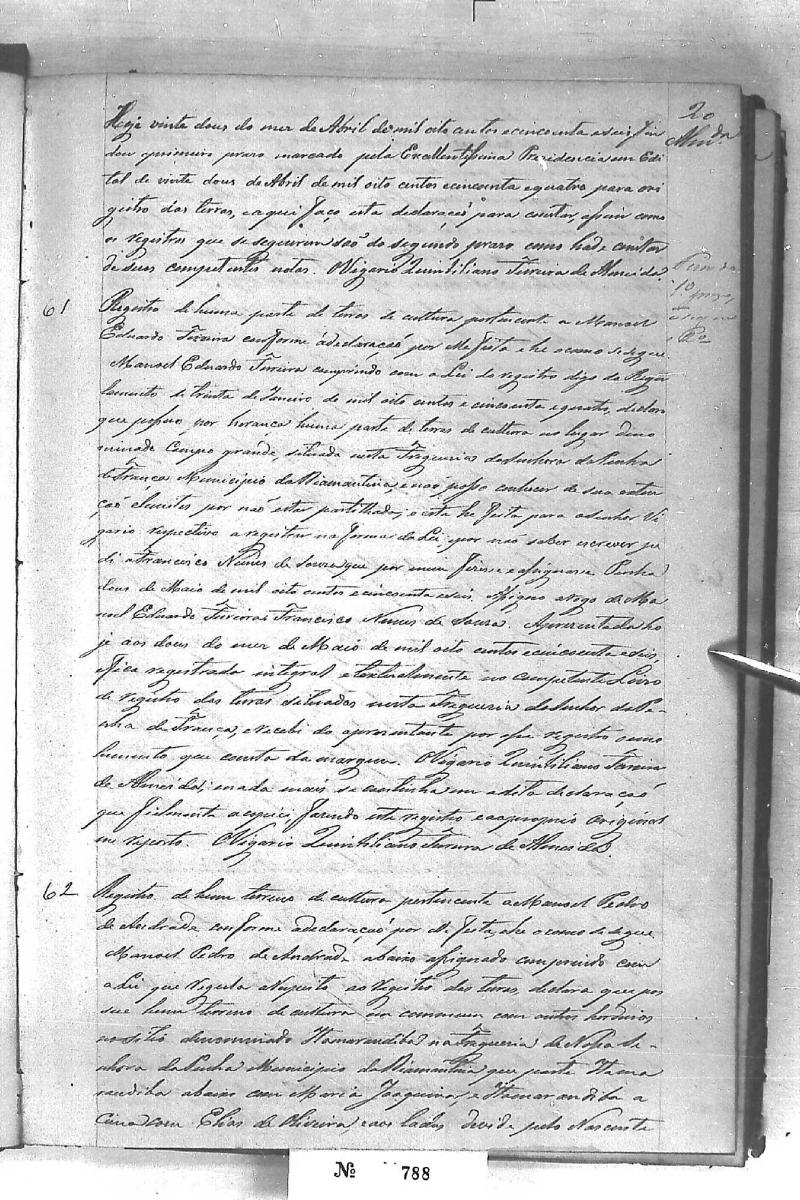 20
Almd.da
Hoje vinte dous do mez de Abril de mil oito centos e cincoenta e seis fin
dou o primeiro prazo marcado pela Excellentissima Presidencia em Edi
tal de vinte dous de Abril de mil oito centos e cincoenta e quatro para o ri
gistro das terras, e aqui faço esta declaraçaõ para constar, assim como
os registros que se seguirem saõ do segundo prazo como hade constar
de seus competentes notas. O Vigario Quintiliano Ferreira de Almeida.
1º prazo
61
Registro de huma parte de terras de cultura pertencente a Manoel
Eduardo Ferreira conforme á declaraçaõ por Elle feita e he o como se segue.
Manoel Eduardo Ferreira cumprindo com a Lei do registro digo do Regu
lamento de trinta de Janeiro de mil oito centos e cincoenta e quatro, declara
que possue por herança huma parte de terras de cultura no lugar deno
minado Campo grande, situada nesta Freguezia da Senhora da Penha
de França Municipio da Diamantina, e naõ posso conhecer de sua exten
çaõ e limites por naõ estar partilhada, e esta he feita para o senhor Vi
gario respectivo a registrar na forma da Lei, e por naõ saber escrever pe
di a Francisco Nunes de Souza que por mim fizesse e assignasse Penha
dous de Maio de mil oito centos e cincoenta e seis. Assigno a rogo de Ma
noel Eduardo Ferreira Francisco Nunes de Souza. Apresentada ho
je aos dous do mez de Maio de mil oito centos e cincoenta e seis,
e fica registrada integral e textualmente no competente Livro
de registro das terras situadas nesta Freguezia da Senhora da Pe-
nha de França, e recebi do apresentante por esse registro o emo
lumento que consta da margem. O Vigario Quintiliano Ferreira
de Almeida, e nada mais se continha em a dita declaraçaõ
que fielmente aqui copiei, fazendo este registro e ao proprio original
me reporto. O Vigario Quintiliano Ferreira de Almeida.
62
Registro de hum terreno de cultura pertencente a Manoel Pedro
de Andrade conforme a declaraçaõ por Elle feita, e he o como se segue.
Manoel Pedro de Andrade abaixo assignado comprindo com
a Lei que regula a respeito ao registro das terras, declara que pos
sue hum terreno de cultura em commum com outros herdeiros
no sitio denominado Itamarandiba na Freguezia de Nossa Se-
nhora da Penha Municipio da Diamantina que parte Itama
randiba abaixo com Maria Joaquina, e Itamarandiba a
Cima com Elias de Oliveira, e aos lados devide pelo Nascente
Nº 788